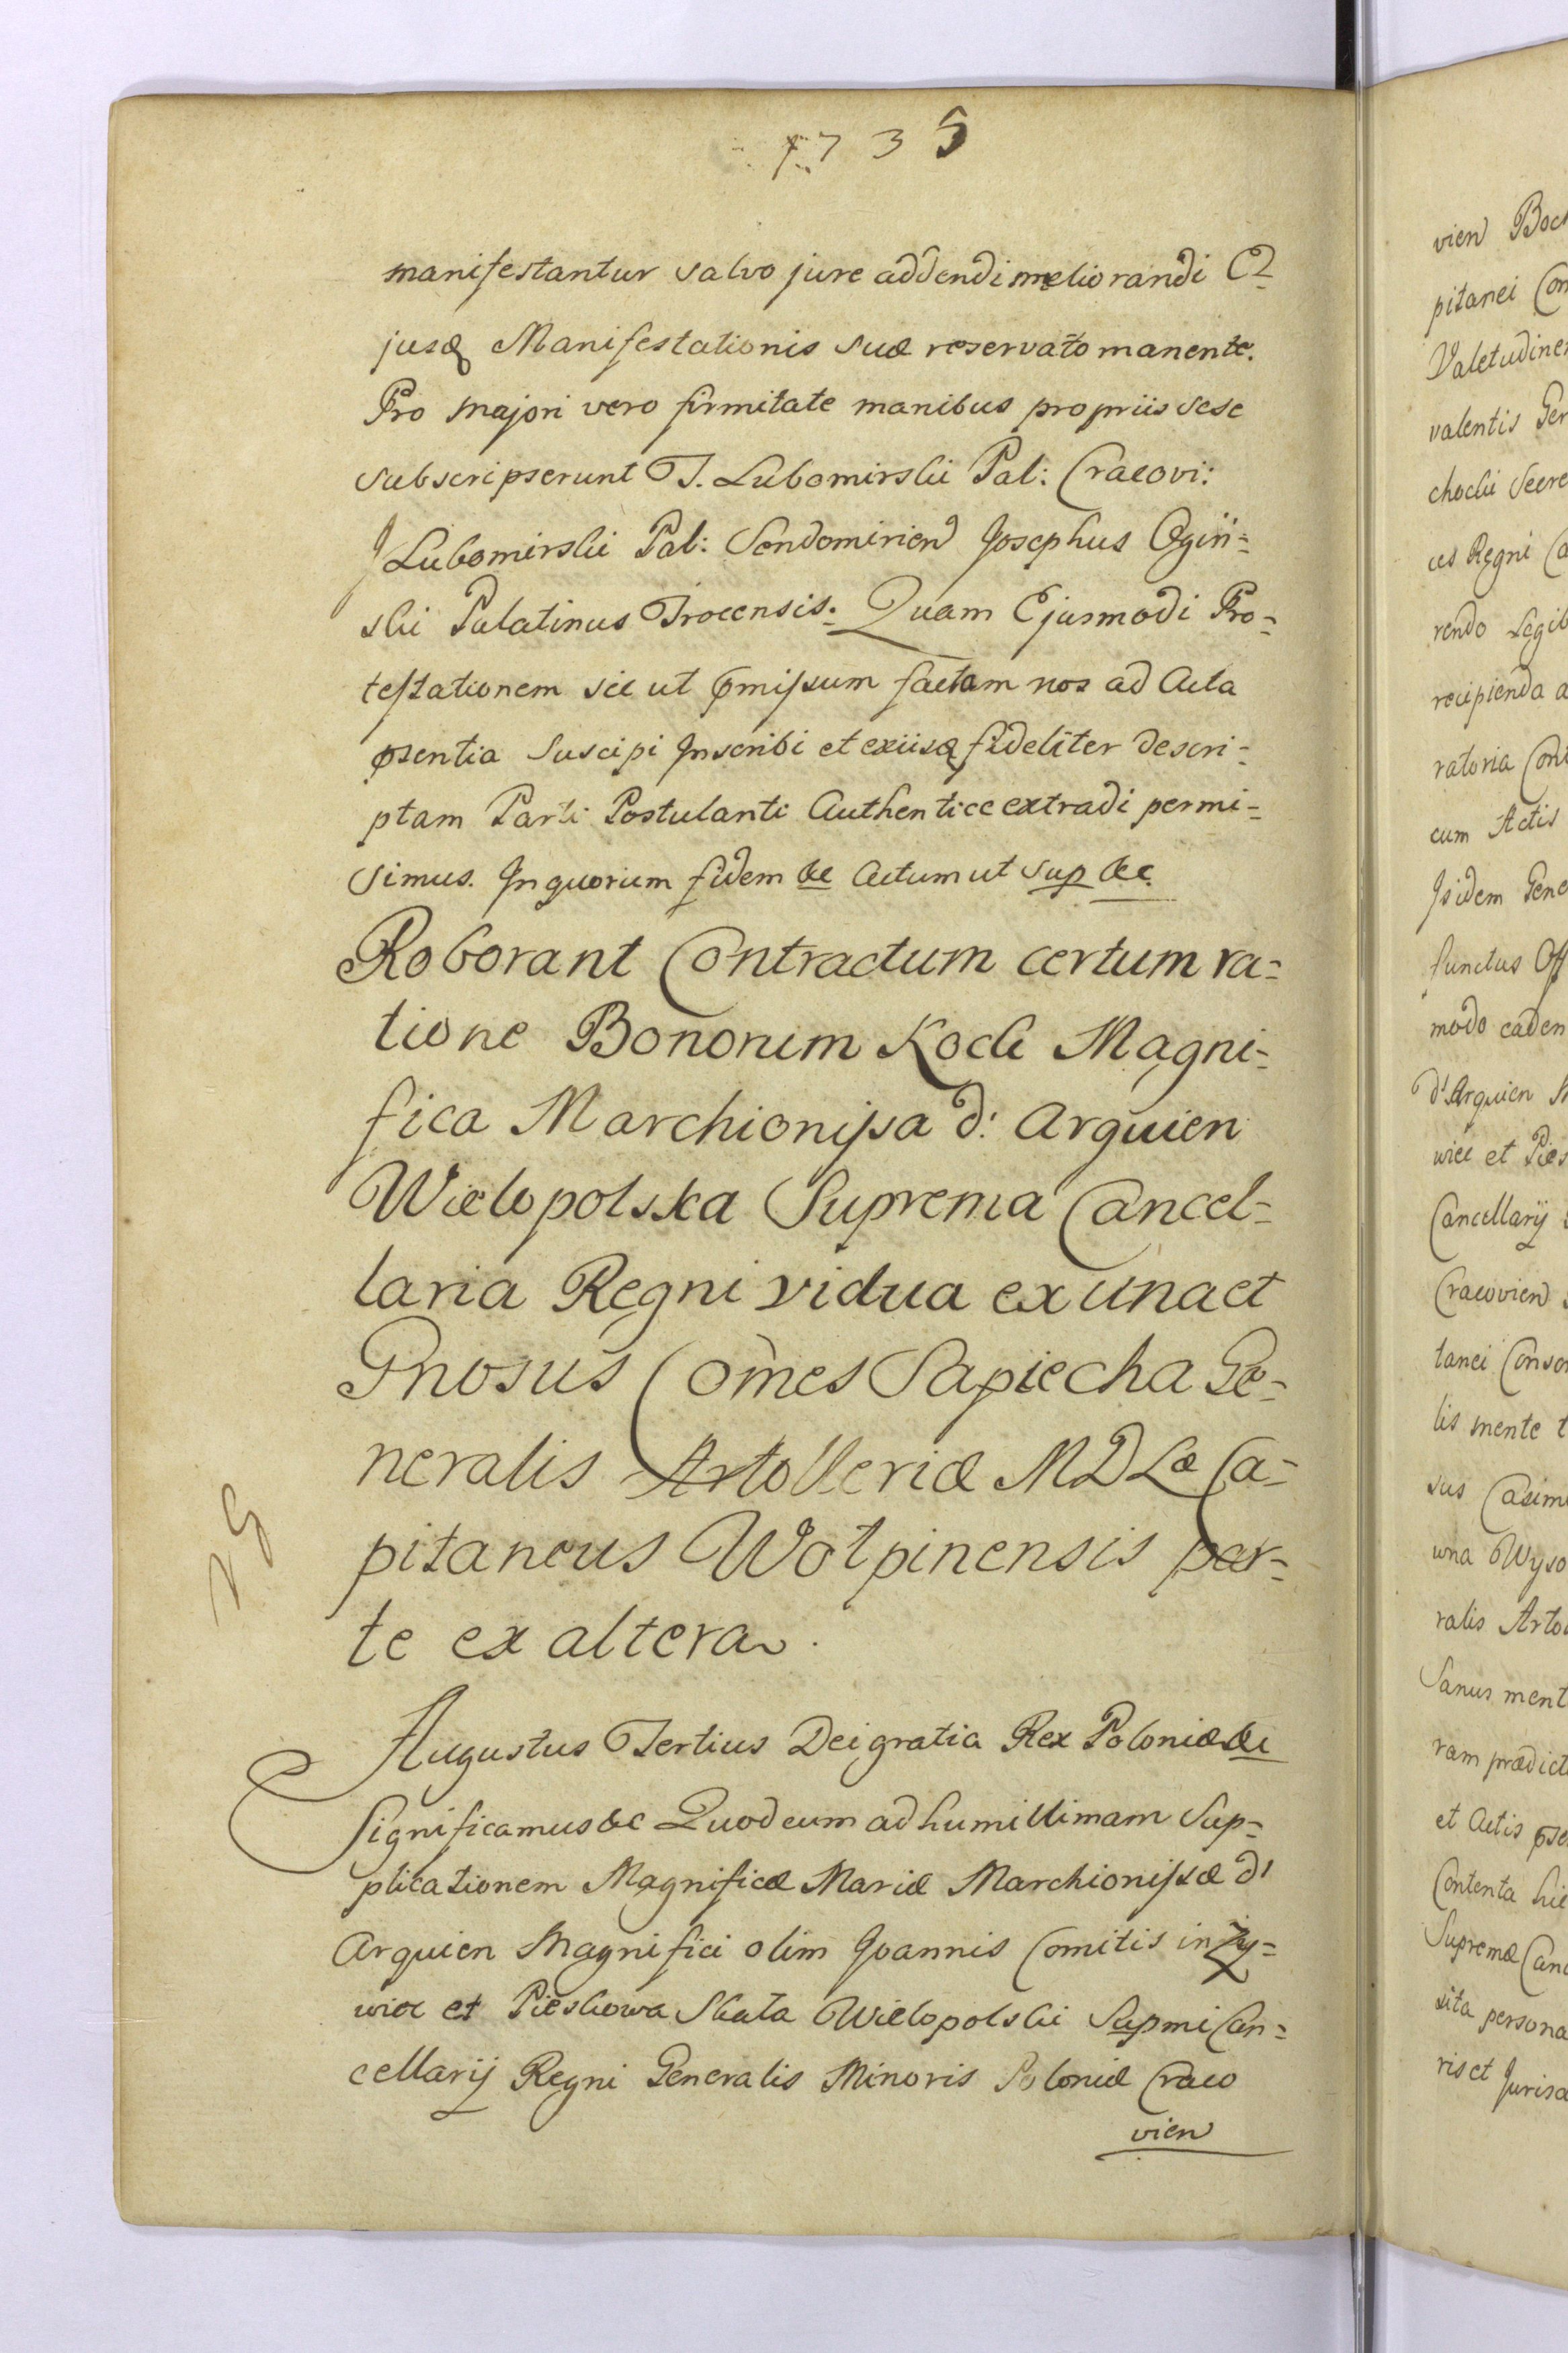 1735
manifestantur salvo jure addendi meliorandi Ej=
jusq Manifestationis suæ reservato manente.
Pro majori vero firmitate manibus propriis sese
subscripserunt T. Lubomirski Pal: Cracovi:
J Lubomirski Pal: Sendomirien Josephus Ogiń=
ski Palatinus Trocensis. Quam Ejusmodi Pro=
testationem sic ut pmissum factam nos ad Acta
psentia Suscipi Inscribi et exiisq fideliter descri=
ptam Parti Postulanti Authentice extradi permi=
simus. In quorum fidem &c Actum ut sup &c.
Roborant Contractum certum ra=
tione Bonorum Kock Magni=
fica Marchionissa d' Arquien
Wielopolska Suprema Cancel=
laria Regni vidua ex una et
Gnosus Comes Sapiecha Ge=
neralis Artolleriæ MDLæ Ca=
pitaneus Wołpinensis par=
te ex altera.
Augustus Tertius Dei gratia Rex Poloniæ &c
Significamus &c Quod cum ad humillimam Sup=
plicationem Magnificæ Mariæ Marchionissæ d'
Arquien Magnifici olim Joannis Comitis in Zy=
wiec et Pieskowa Skała Wielopolski Supmi Can=
cellarij Regni Generalis Minoris Poloniæ Craco
vien
vien
pitanei
Valetudine
valentis
ces Regni
rendo
recipienda
ratoria
cum Actis
Ijsidem
functus
modo
d'Arquien
wiec et
Cancellarij
Cracovien
tanei
lis mente
sus Casim
una
ralis
Sanus
ram
et Actis
Contenta
Supremæ
sita persona
ris et